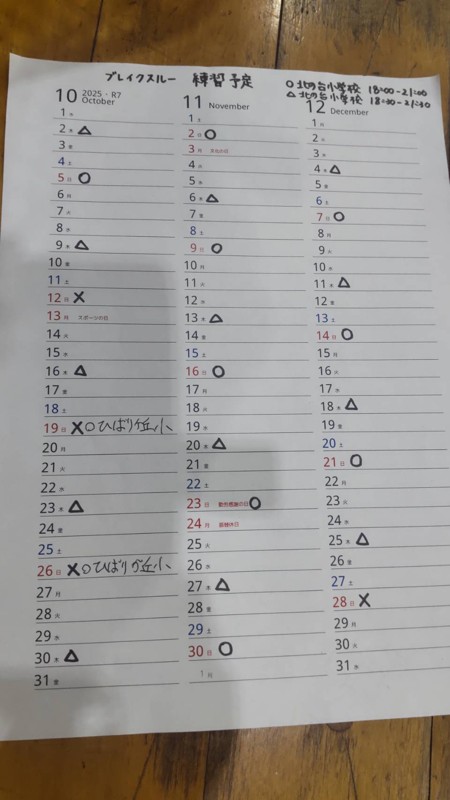 ブレイクスルー 練習予定
○北の台小学校 18:00-21:00
△北の台小学校 18:30-21:30
10 2025・R7 October
1 水
2 木 △
3 金
4 土
5 日 ○
6 月
7 火
8 水
9 木 △
10 金
11 土
12 日 ×
13 月 スポーツの日
14 火
15 水
16 木 △
17 金
18 土
19 日 ×○ひばりが丘小
20 月
21 火
22 水
23 木 △
24 金
25 土
26 日 ×○ひばりが丘小
27 月
28 火
29 水
30 木 △
31 金
11 November
1 土
2 日 ○
3 月 文化の日
4 火
5 水
6 木 △
7 金
8 土
9 日 ○
10 月
11 火
12 水
13 木 △
14 金
15 土
16 日 ○
17 月
18 火
19 水
20 木 △
21 金
22 土
23 日 勤労感謝の日 ○
24 月 振替休日
25 火
26 水
27 木 △
28 金
29 土
30 日 ○
1 月
12 December
1 月
2 火
3 水
4 木 △
5 金
6 土
7 日 ○
8 月
9 火
10 水
11 木 △
12 金
13 土
14 日 ○
15 月
16 火
17 水
18 木 △
19 金
20 土
21 日 ○
22 月
23 火
24 水
25 木 △
26 金
27 土
28 日 ×
29 月
30 火
31 水